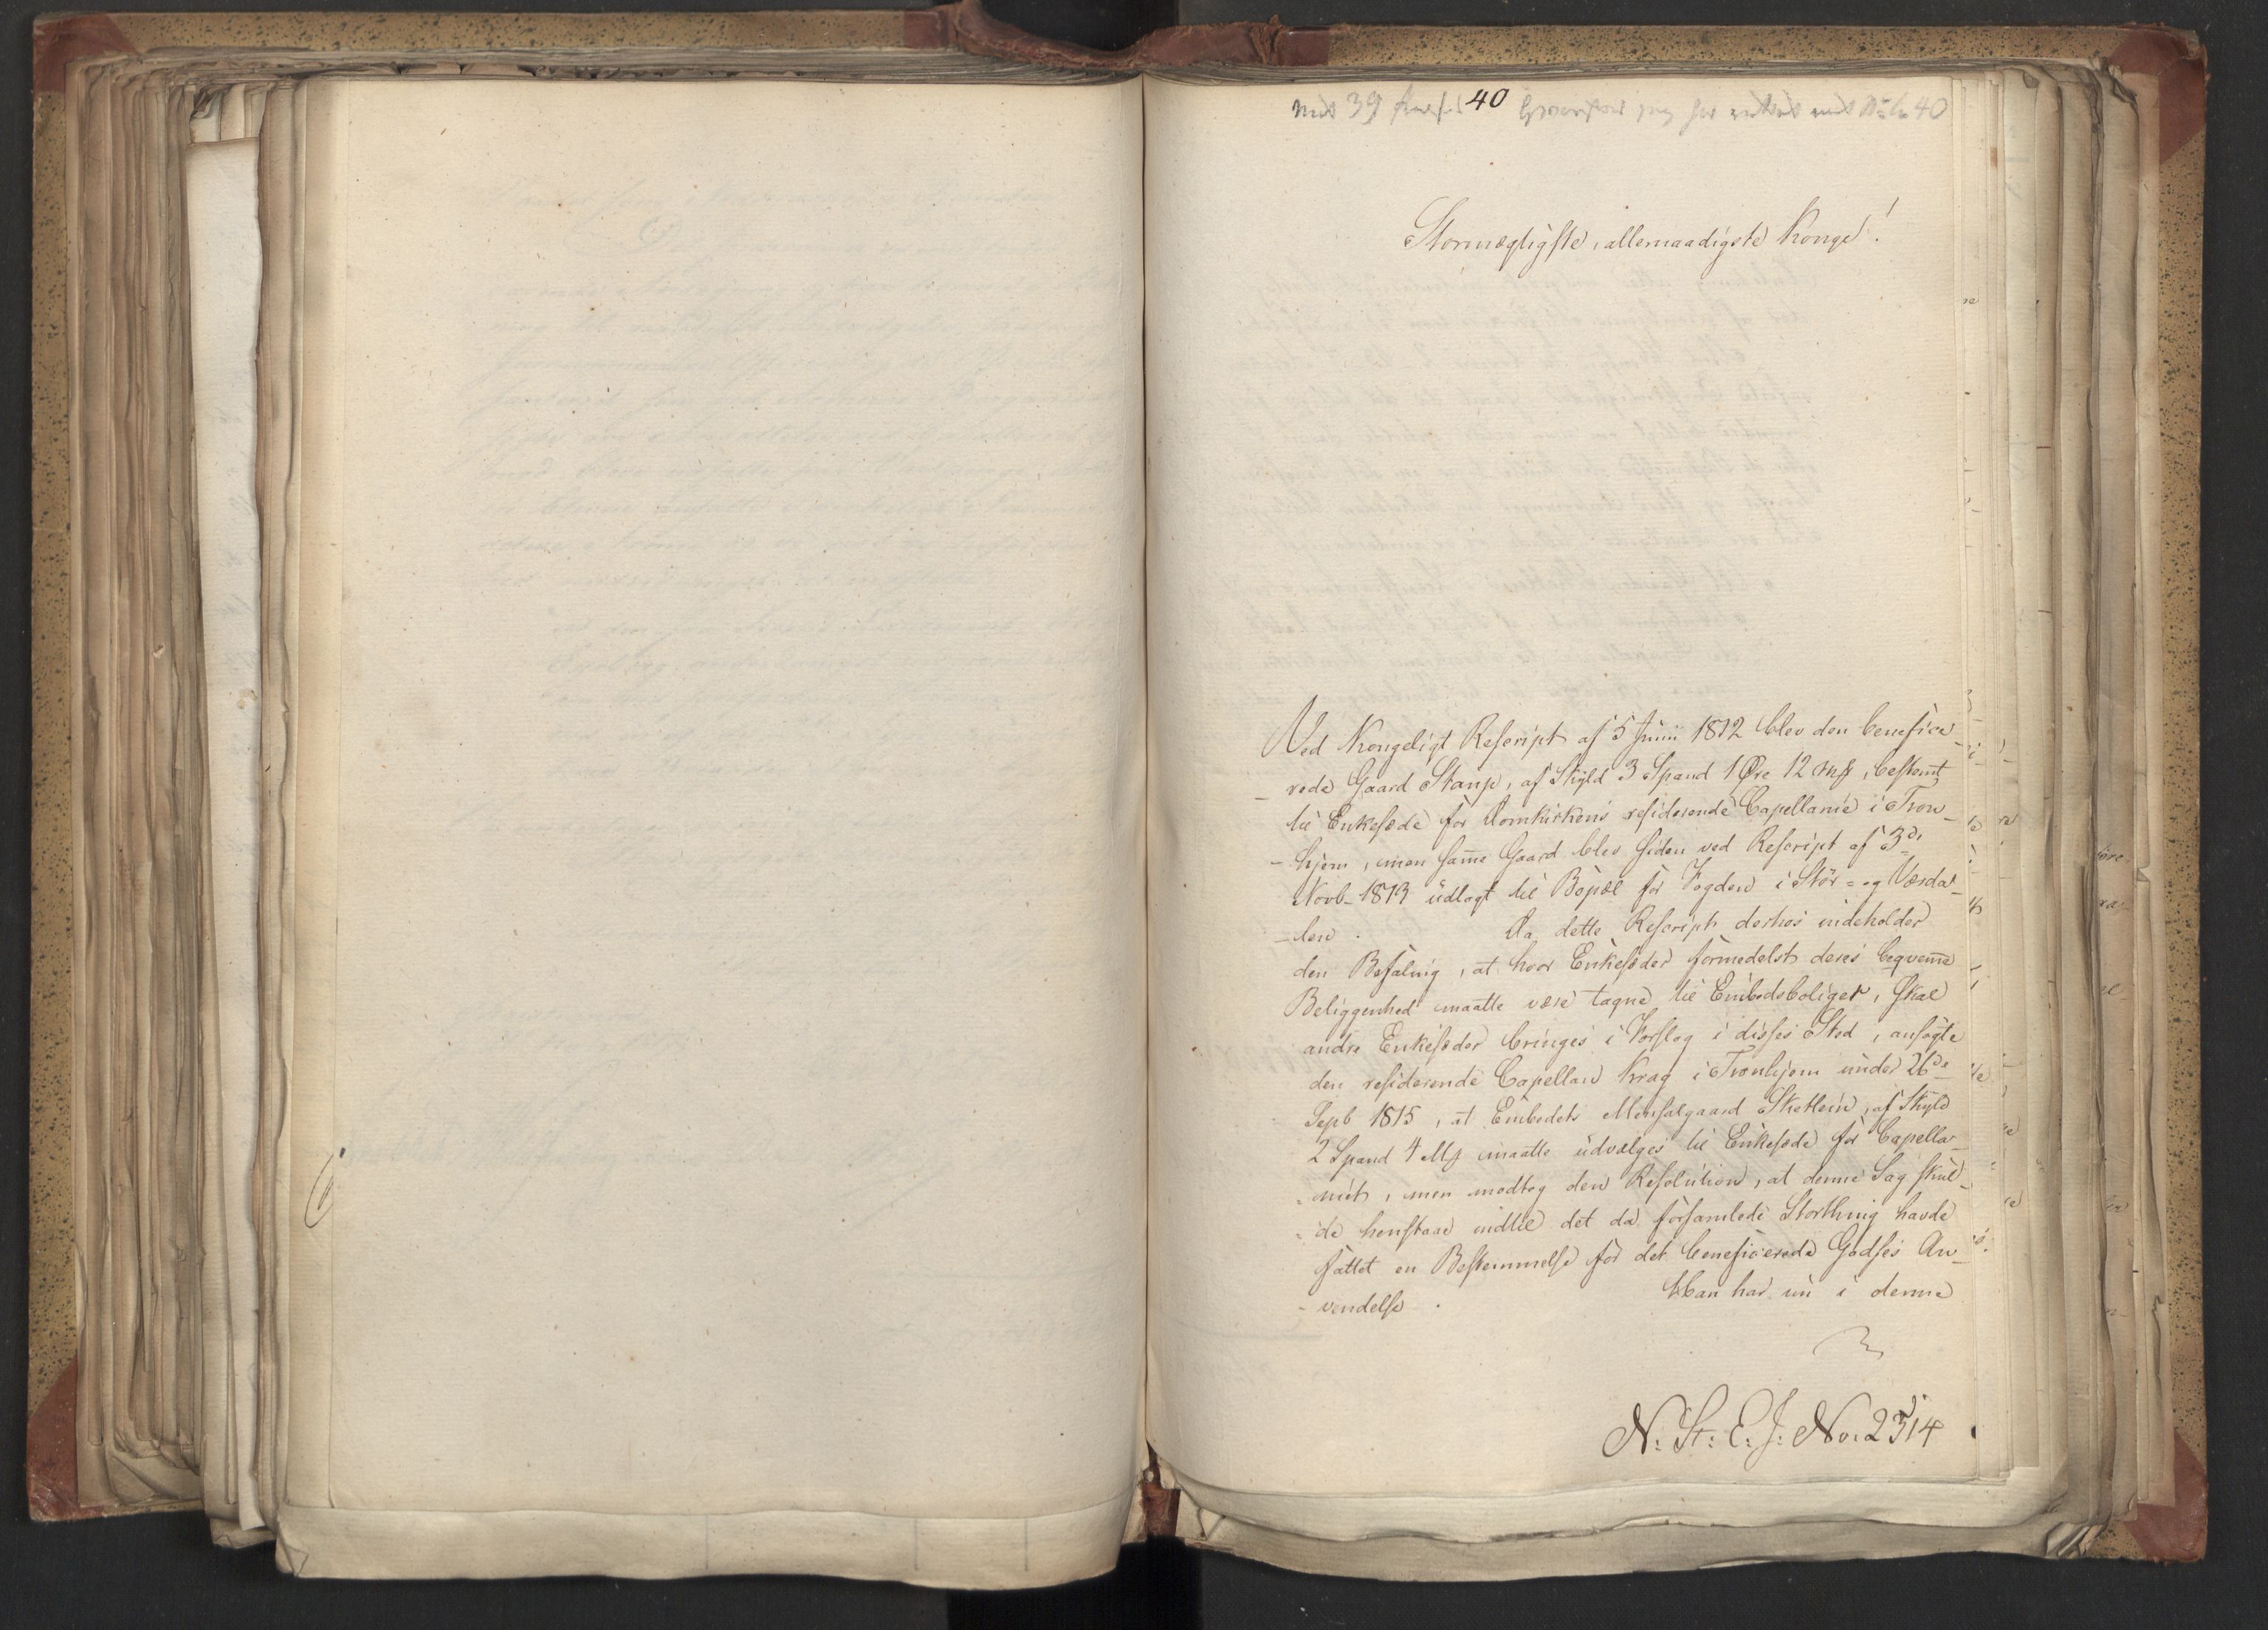 40
39 40
Stormægtigste, allernaadigste Konge!
Ved Kongeligt Rescript af 5 Junii 1812 blev den benefice-
rede Gaard Staup, af Skyld 3 Spand 1 Øre 12 , bestemt
til Enkesæde for Domkirkens residerende Capellanie i Tron-
hjem, men samme Gaard blev siden ved Rescript af 3de
Novb 1813 udlagt til Bopæl for Fogden i Stør- og Værda-
len. Da dette Rescript derhos indeholder
den Befaling, at hvor Enkesæder formedelst deres beqvemme
Beliggenhed maatte være tagne til Embedsboliger, skal
andre Enkesæder bringes i Forslag i disses Sted, ansøgte
den residerende Capellan Krag i Tronhjem under 26de
Septb 1815, at Embedets Mensalgaard Sketlein, af Skyld
2 Spand 4 maatte udvælges til Enkesæde for Capella-
niet, men modtog den Resolution, at denne Sag skul-
de henstaae indtil det da forsamlede Storthing havde
fattet en Bestemmelse for det beneficerede Godses An-
vendelse. Man har nu i denne
N: St: E: J: No: 2514